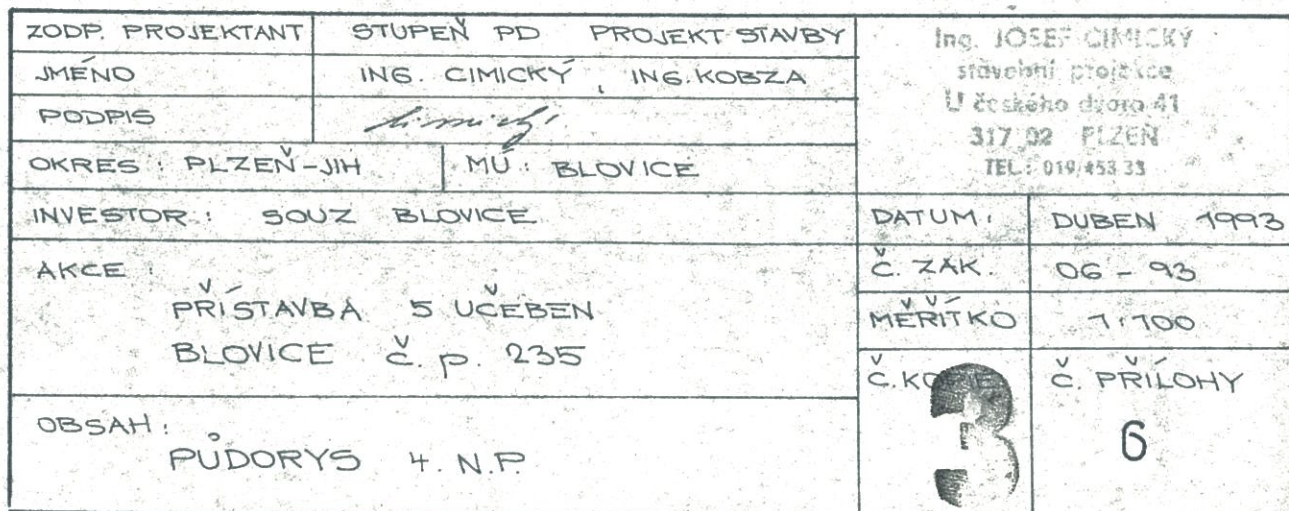 ZODP. PROJEKTANT STUPEŇ PD PROJEKT STAVBY
JMÉNO ING. CIMICKÝ, ING. KOBZA
PODPIS
OKRES : PLZEŇ-JIH MÚ : BLOVICE
INVESTOR : SOUZ BLOVICE
AKCE :
PŘÍSTAVBA 5 UČEBEN
BLOVICE č. p. 235
OBSAH :
PŮDORYS 4. N.P.
Ing. JOSEF CIMICKÝ
stavební projekce
U českého dvora 41
317 02 PLZEŇ
TEL.: 019/453 33
DATUM : DUBEN 1993
Č. ZAK. 06 - 93
MĚŘÍTKO 1:100
Č. KOPIE 3
Č. PŘÍLOHY
6